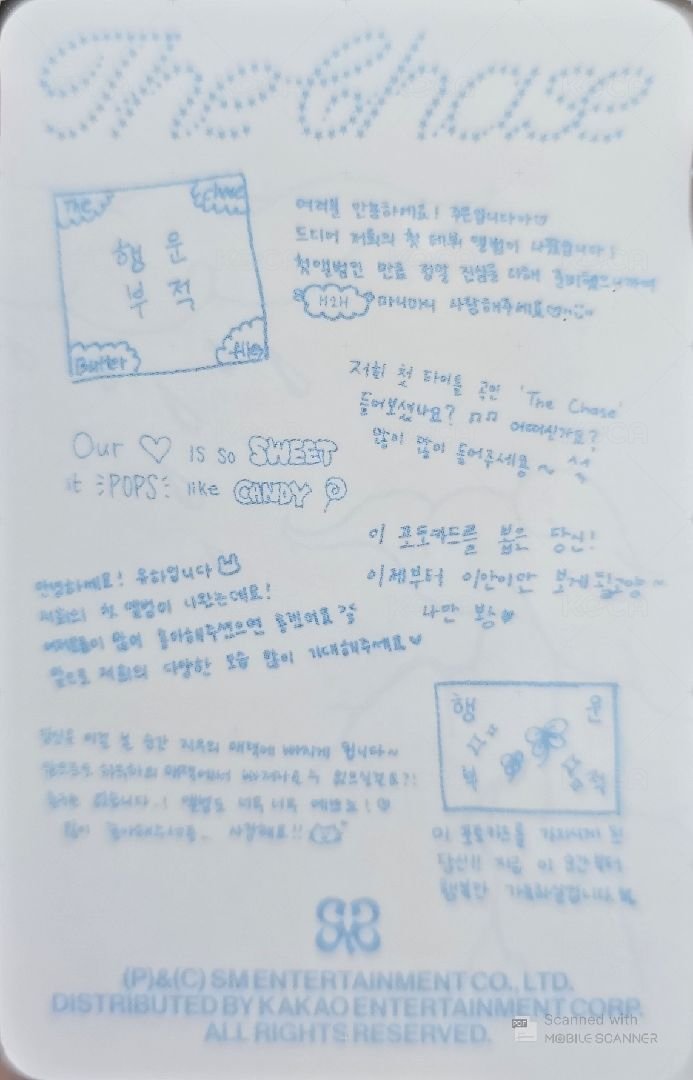 The Chase
The Chase
행 운
부 적
Butter flies
여러분 안녕하세요! 주은입니다아
드디어 저희의 첫 데뷔 앨범이 나왔습니다!
첫 앨범인 만큼 정말 진심을 다해 준비했으니까
H2H 마니마니 사랑해주세요
저희 첫 타이틀 곡인 'The Chase'
들어보셨나요? 어떠신가요?
많이 많이 들어주세용~
Our ♡ is so SWEET
it POPS like CANDY
이 포토카드를 뽑은 당신!
이제부터 이안이만 보게 될고양~
나만 봐
안녕하세요! 유하입니다
저희의 첫 앨범이 나왔는데요!
여러분들이 많이 좋아해주셨으면 좋겠어요
앞으로 저희의 다양한 모습 많이 기대해주세요♥
당신은 이걸 본 순간 지우의 매력에 빠지게 됩니다~
매력에서 빠져나올 수 없으실걸요?!
앨범도 너무 너무 예쁘죠!♡
많이 좋아해주세요 사랑해요!!
행 운
부 적
이 포토카드를 가지시게 된
당신!! 지금 이 순간부터
행복만 가득하실겁니다.
(P)&(C) SM ENTERTAINMENT CO., LTD.
DISTRIBUTED BY KAKAO ENTERTAINMENT CORP.
ALL RIGHTS RESERVED.
PDF Scanned with
MOBILE SCANNER